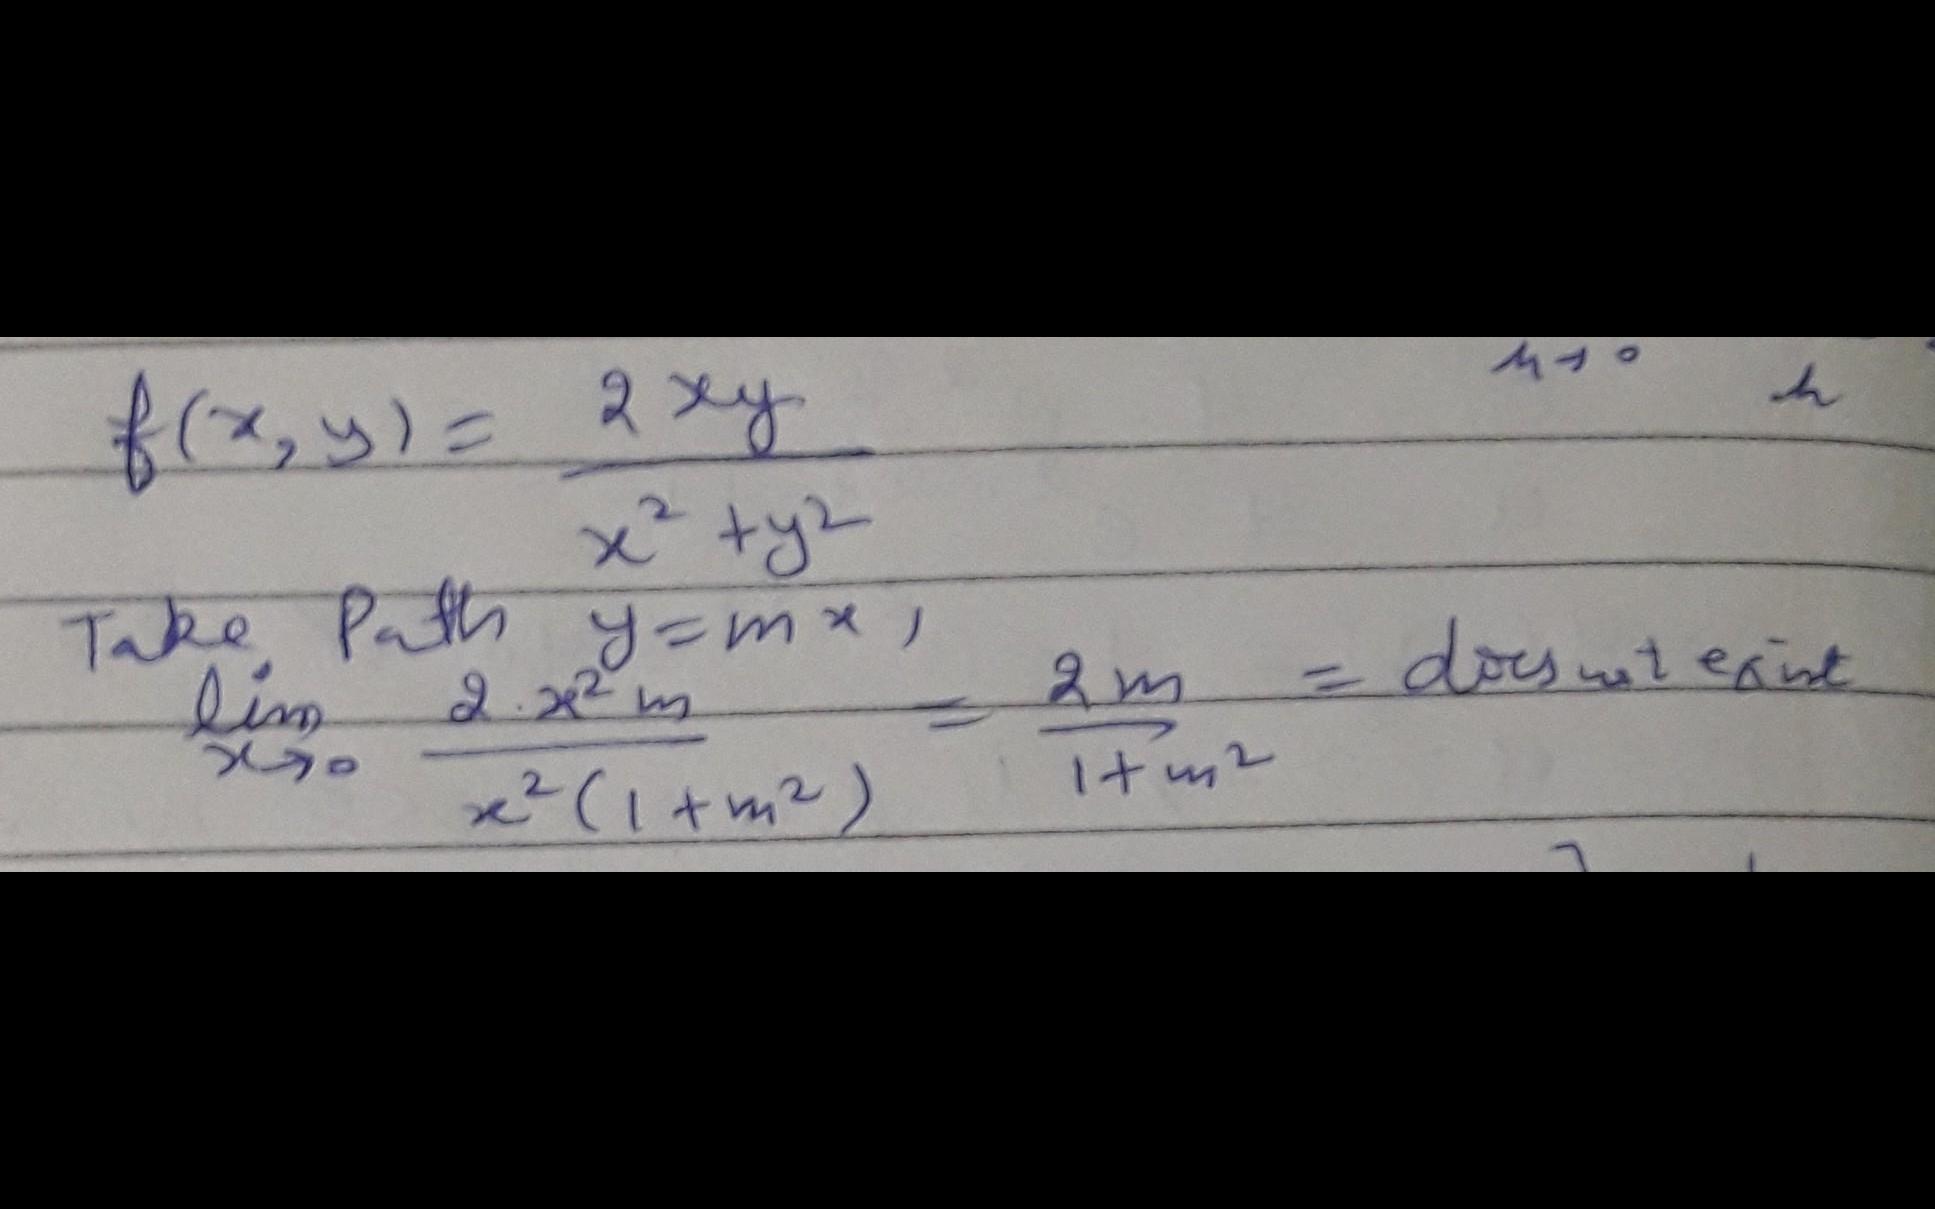 h→0
h
f(x, y) = 2xy / x² + y²
Take Path y = mx,
lim x→0 2·x²m / x²(1+m²) = 2m / 1+m² = does not exist